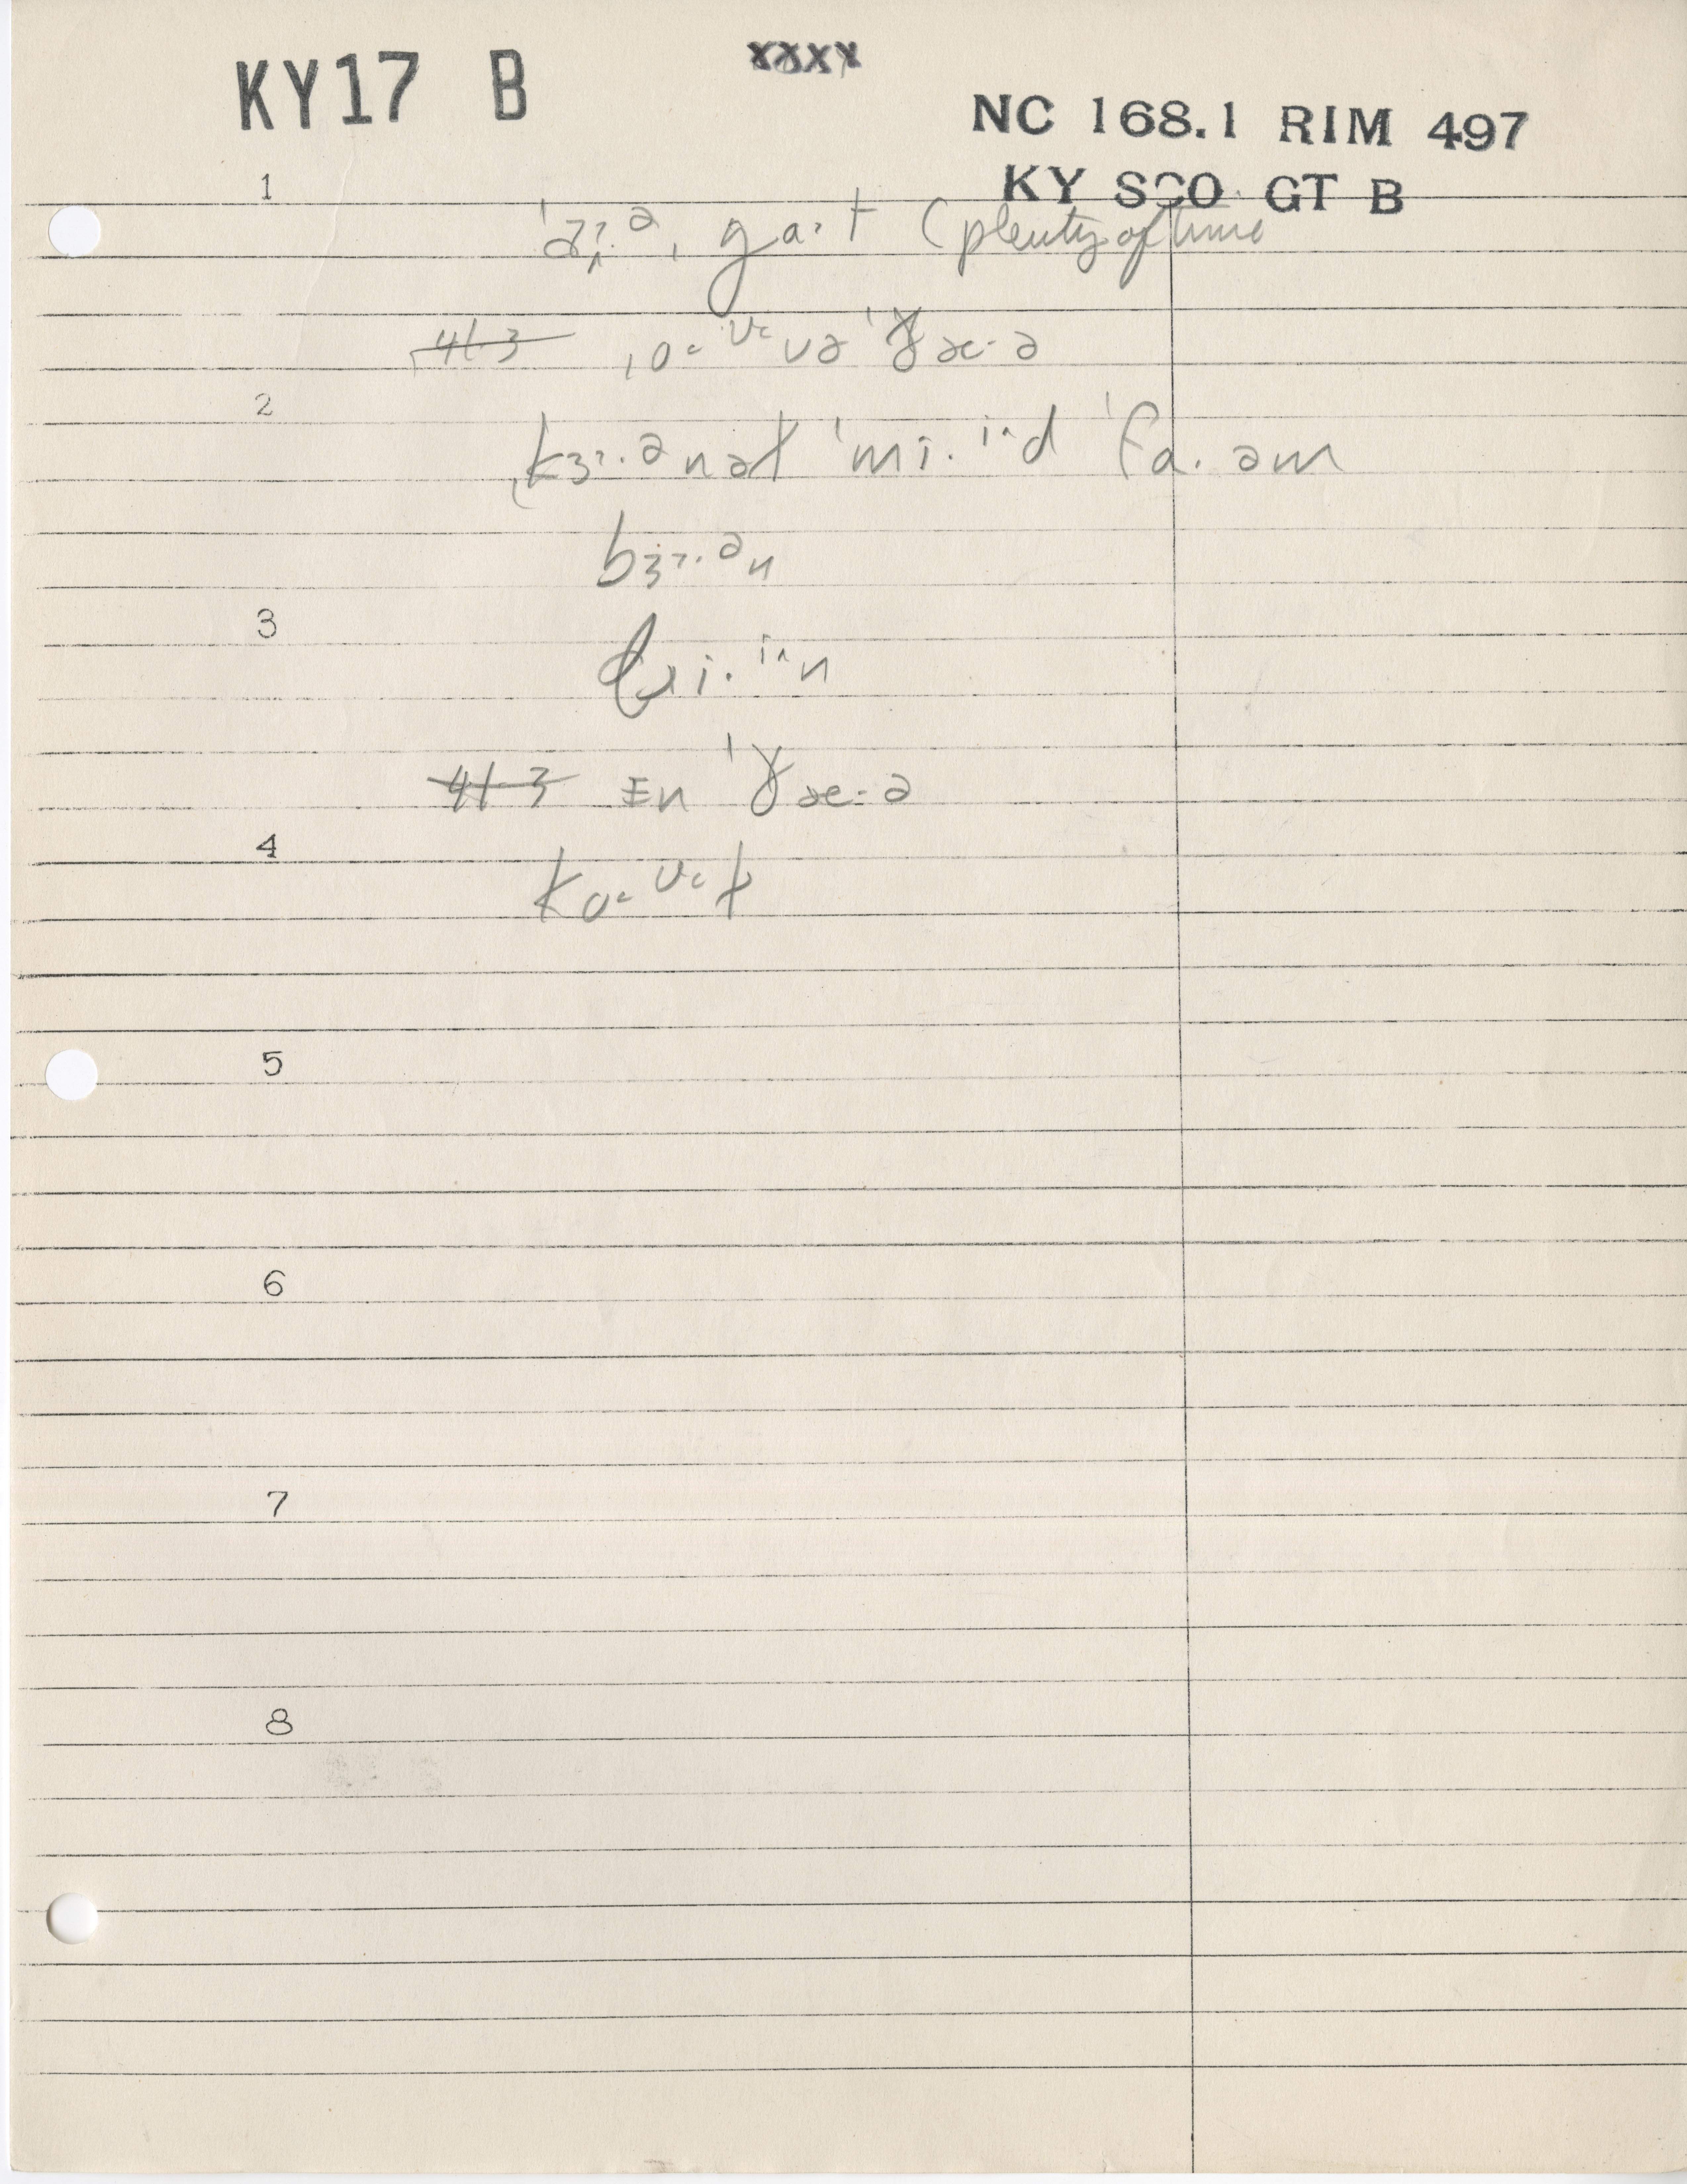 KY17 B xxxx
NC 168.1 RIM 497
KY SCO GT B
1
gɑ·t (plenty of time
41-3 ˌo˂ ʊ˂ və ˈɣæ·ə
2
ˌkɜ˞·ənət ˈmi·i^d ˈfɑ·əm
bɜ˞·ən
3
i·i^n
41-3 ɪn ˈɣæ·ə
4
ko˂ʊ˂t
5
6
7
8